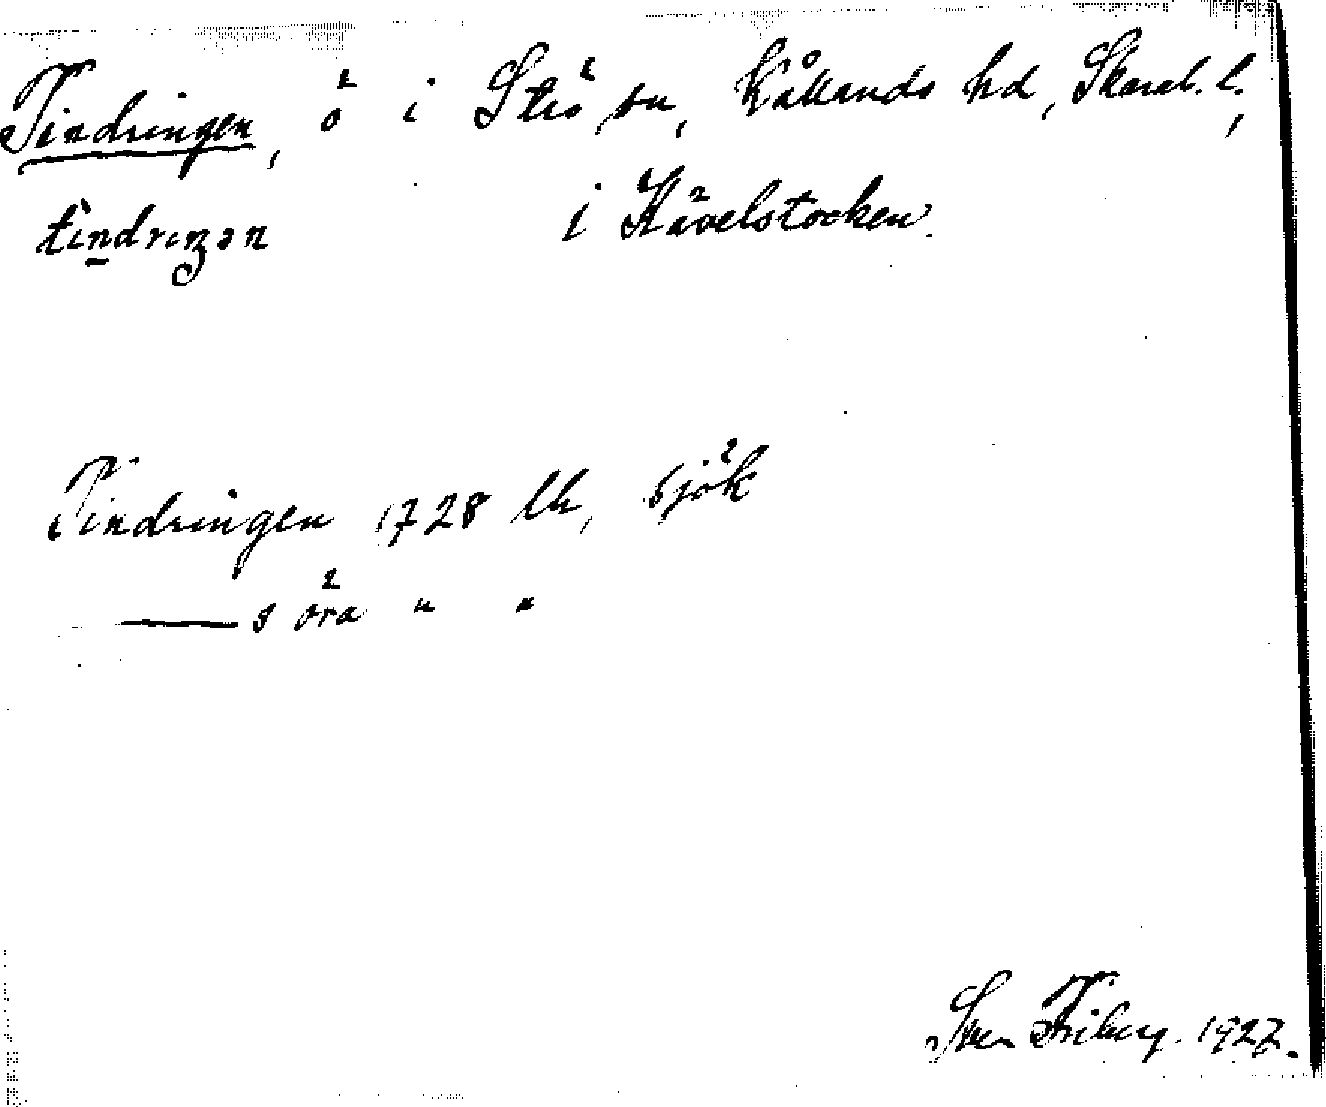 Tindringen, ö i Strö sn, Kållands hd, Skarab. l.,
tindriŋən i Hävelstocken.
Tindringen 1728 Uk, sjök
——s öra " "
Sven Friberg. 1927.